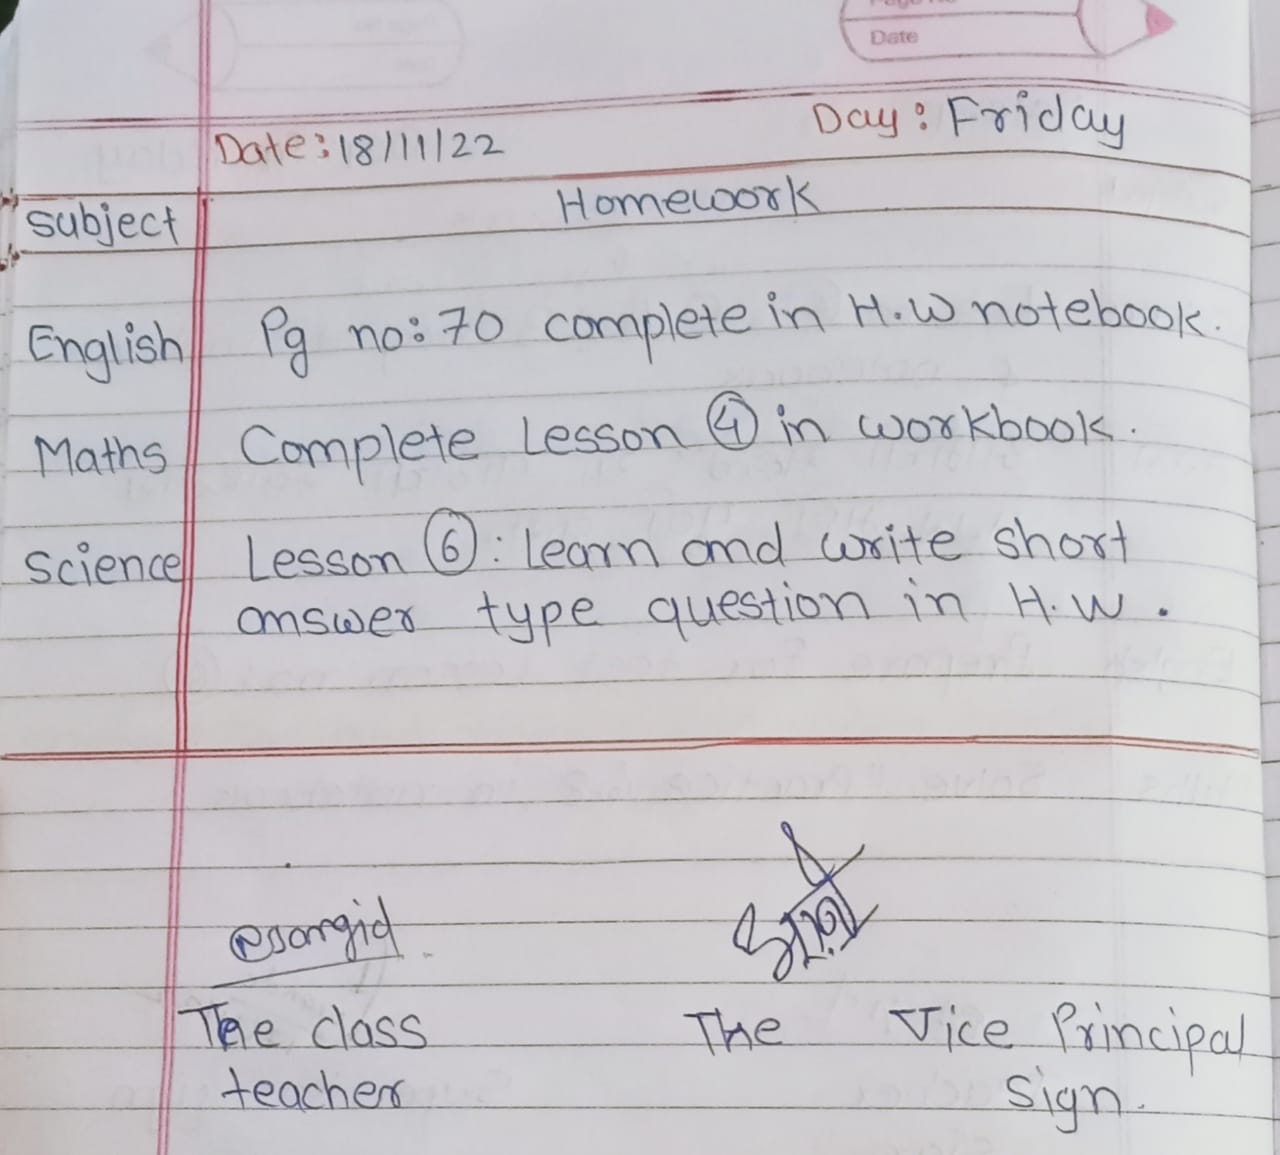 Date
Date: 18/11/22 Day: Friday
Subject Homework
English Pg no: 70 complete in H.W notebook.
Maths Complete Lesson ④ in workbook.
Science Lesson ⑥: Learn and write short
answer type question in H.W.
The class The Vice Principal
teacher Sign.